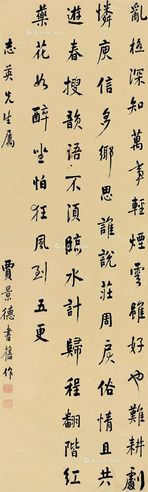 亂極深知萬事輕煙雲雖好也難耕劇
憐庾信多鄉思誰說莊周戾俗情且共
遊春搜韻語不須臨水計歸程翻階紅
藥花如醉坐怕狂風到五更
志英先生屬
賈景德書舊作